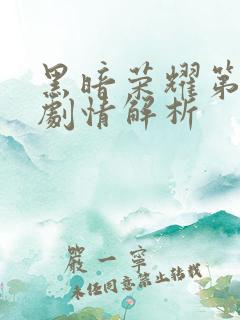 黑暗荣耀第
劇情解析
嚴一寧
未经同意禁止转载